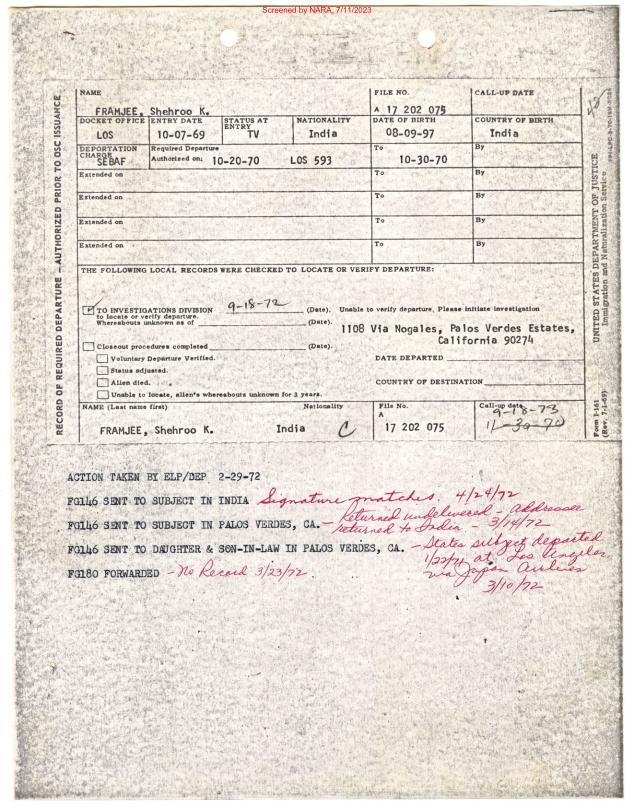 Screened by NARA, 7/11/2023
RECORD OF REQUIRED DEPARTURE - AUTHORIZED PRIOR TO OSC ISSUANCE
NAME
FRAMJEE, Shehroo K.
FILE NO.
A 17 202 075
CALL-UP DATE
DOCKET OFFICE
LOS
ENTRY DATE
10-07-69
STATUS AT ENTRY
TV
NATIONALITY
India
DATE OF BIRTH
08-09-97
COUNTRY OF BIRTH
India
DEPORTATION CHARGE
SEBAF
Required Departure
Authorized on: 10-20-70 LOS 593
To
10-30-70
By
Extended on To By
Extended on To By
Extended on To By
Extended on To By
THE FOLLOWING LOCAL RECORDS WERE CHECKED TO LOCATE OR VERIFY DEPARTURE:
TO INVESTIGATIONS DIVISION 9-18-72 (Date). Unable to verify departure, Please initiate investigation
to locate or verify departure.
Whereabouts unknown as of (Date).
1108 Via Nogales, Palos Verdes Estates,
California 90274
Closeout procedures completed (Date).
Voluntary Departure Verified.
DATE DEPARTED
Status adjusted.
Alien died.
COUNTRY OF DESTINATION
Unable to locate, alien's whereabouts unknown for 3 years.
NAME (Last name first)
FRAMJEE, Shehroo K.
Nationality
India C
File No.
A
17 202 075
Call-up date
9-18-73
11-30-70
UNITED STATES DEPARTMENT OF JUSTICE
Immigration and Naturalization Service
Form I-161
(Rev. 7-1-69)
ACTION TAKEN BY ELP/DEP 2-29-72
FG146 SENT TO SUBJECT IN INDIA Signature matches. 4/24/72
FG146 SENT TO SUBJECT IN PALOS VERDES, CA. - Returned undelivered - Addressee
returned to India - 3/14/72
FG146 SENT TO DAUGHTER & SON-IN-LAW IN PALOS VERDES, CA. - States subject departed
1/22/71 at Los Angeles
via Japan Airlines
3/10/72
FG180 FORWARDED - No Record 3/23/72